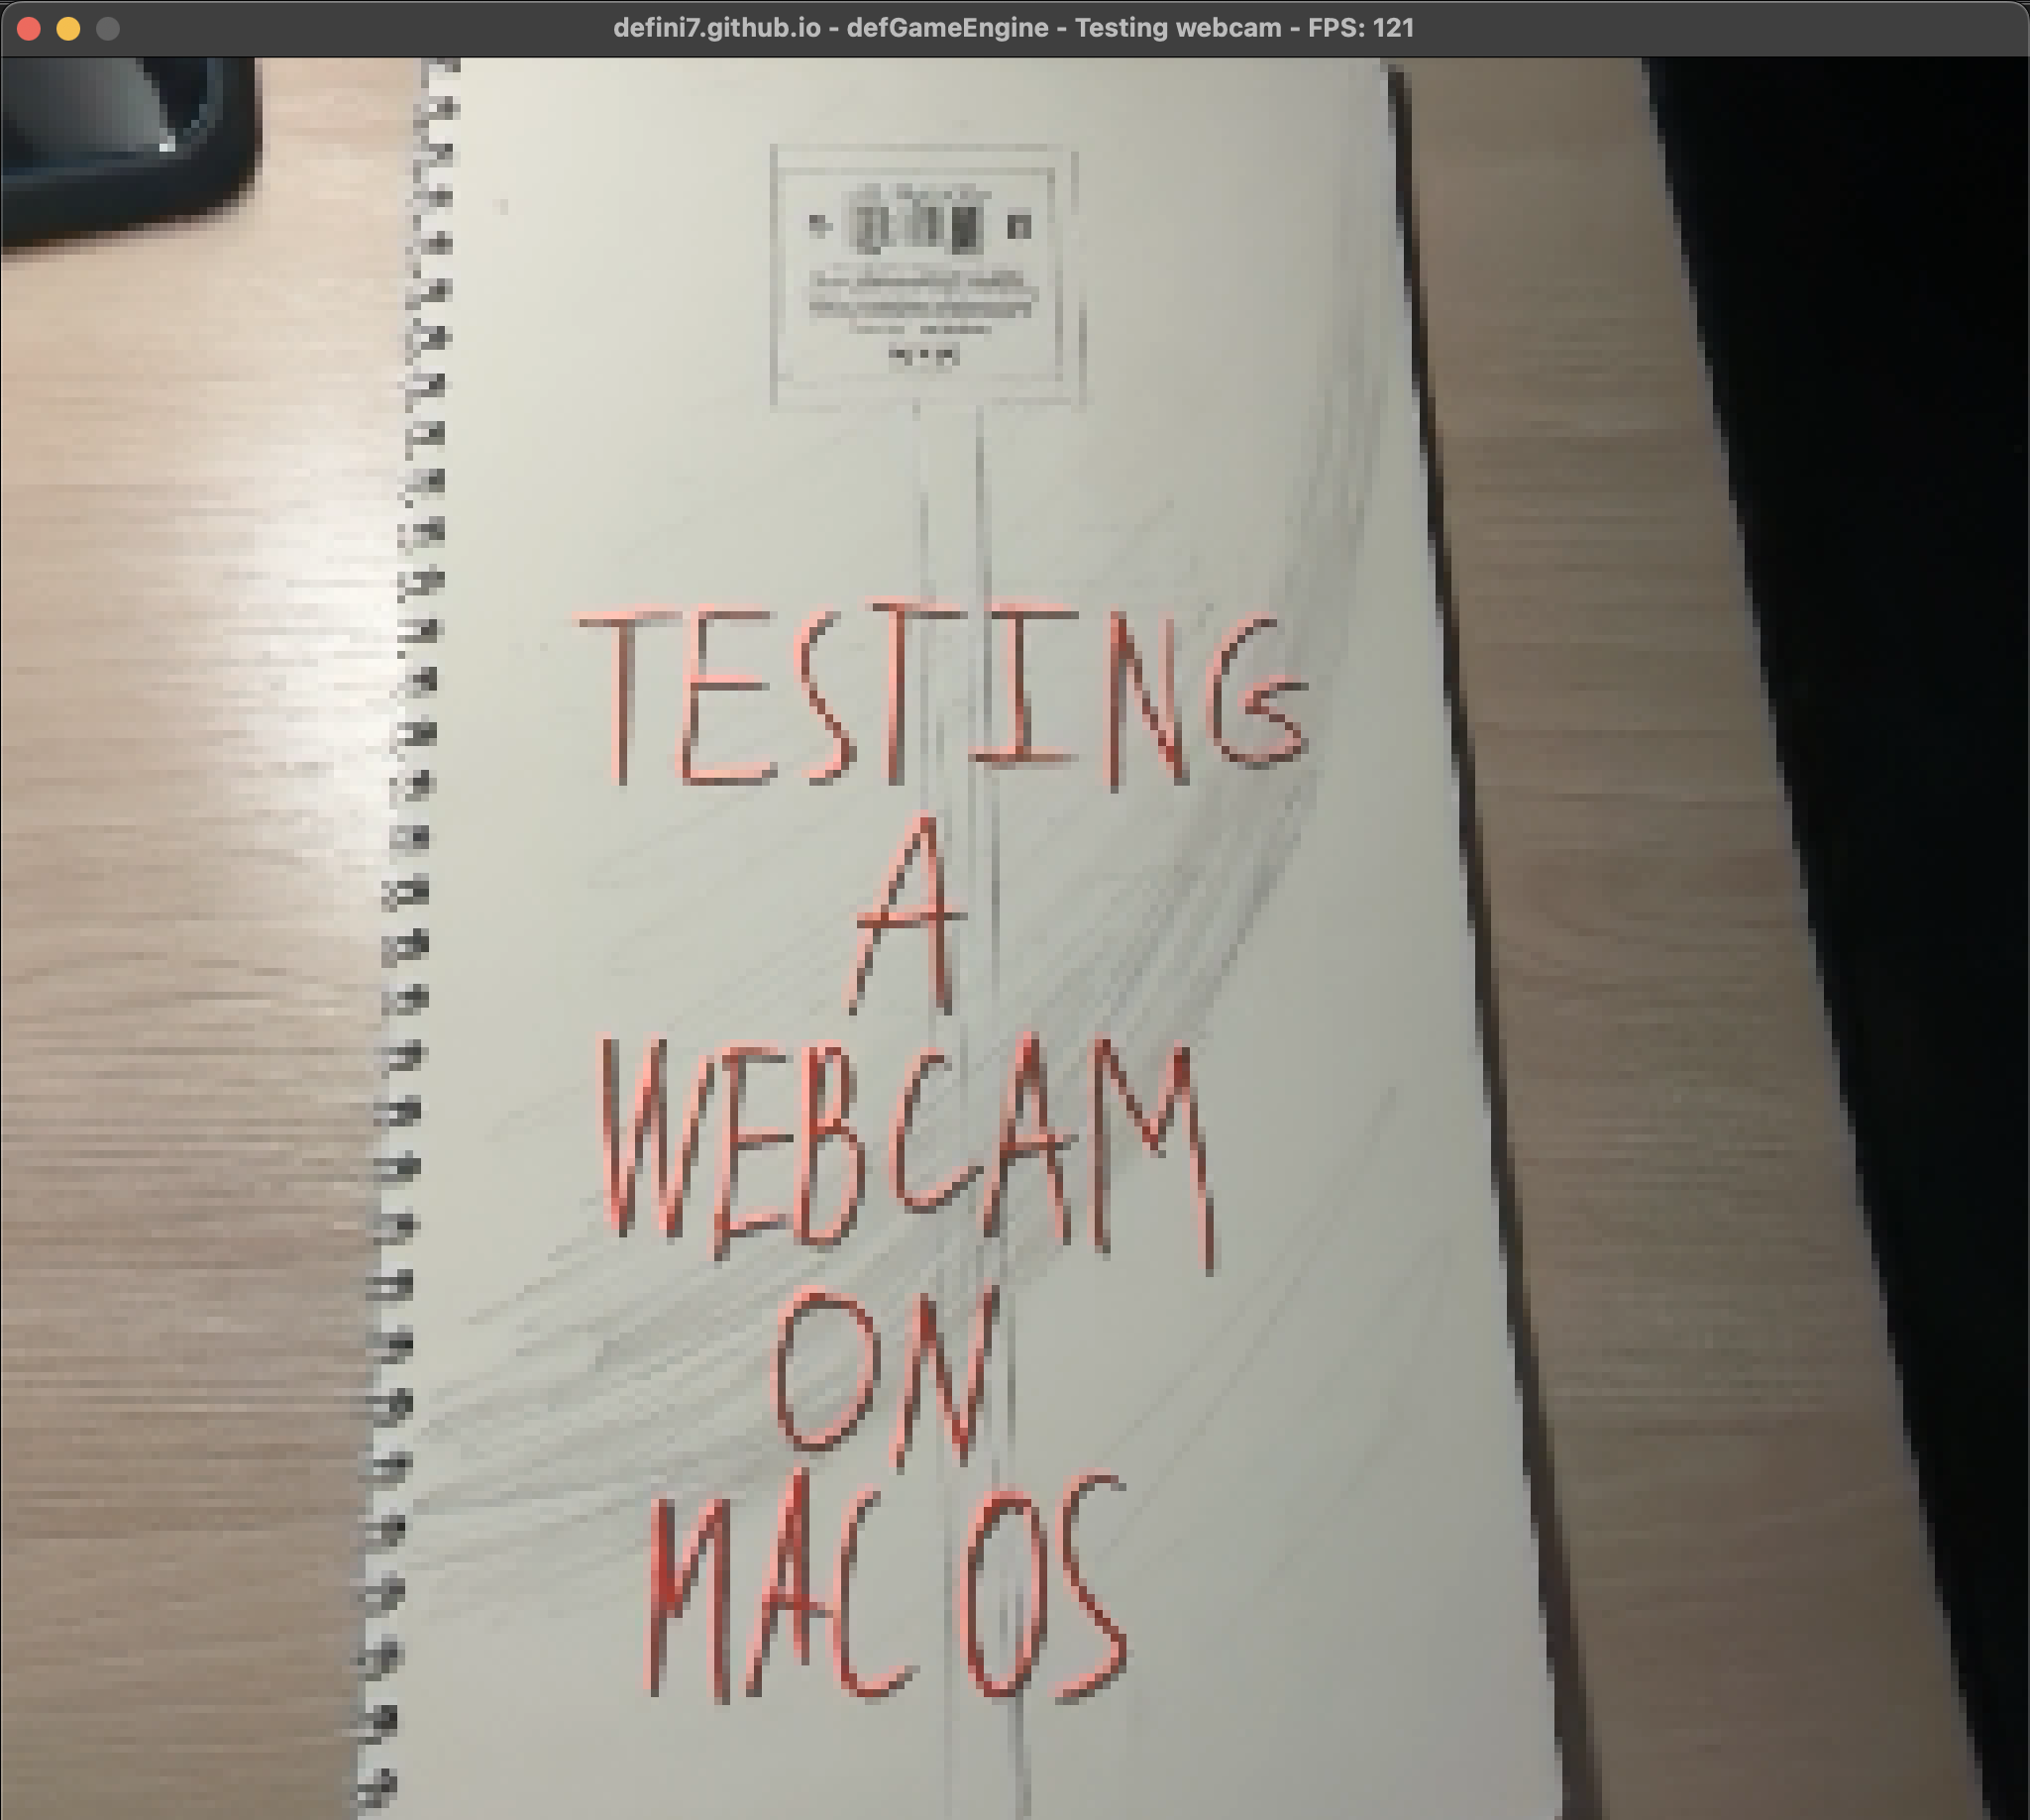 defini7.github.io - defGameEngine - Testing webcam - FPS: 121
TESTING
A
WEBCAM
ON
MACOS